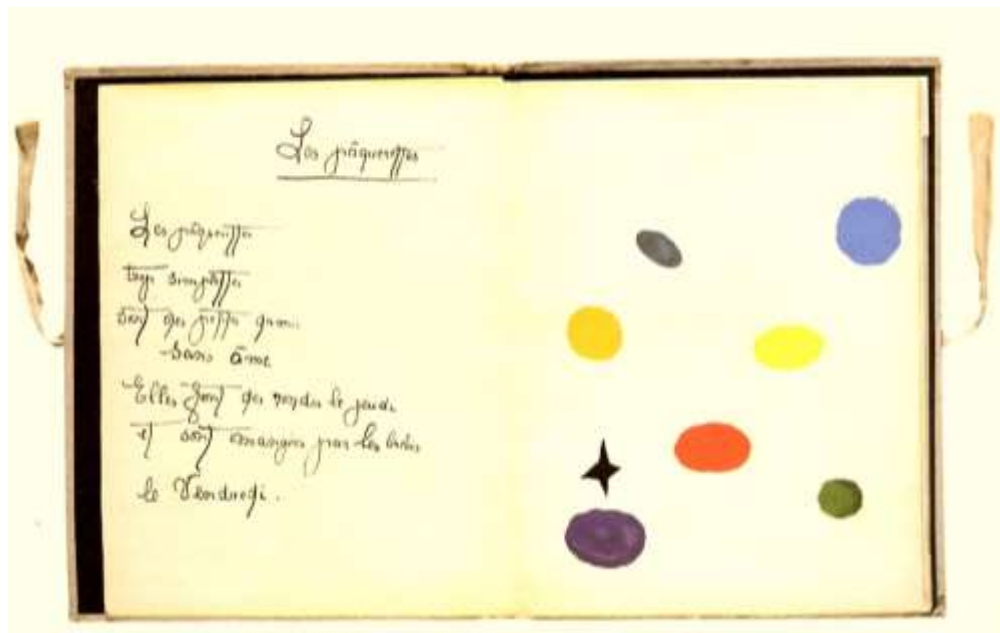 Les pâquerettes
Les pâquerettes
trop simplettes
sont des petites
sans âme
Elles font des rondes le jeudi
et sont mangées par les
le Vendredi.